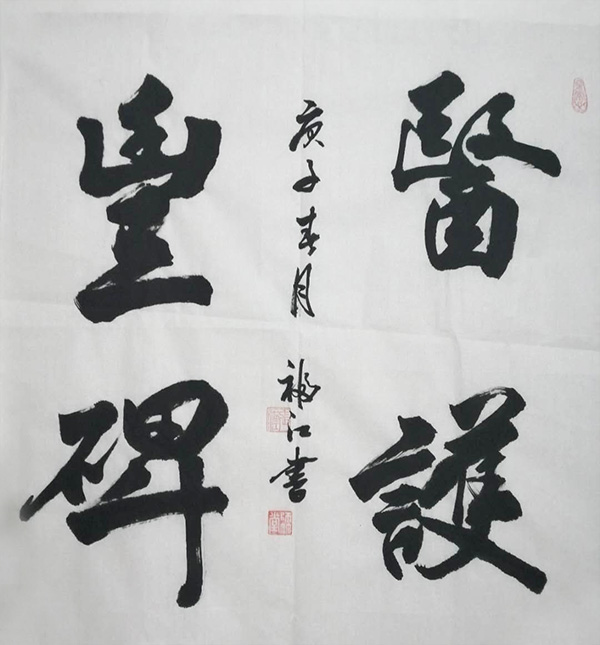 醫護
豐碑
庚子春月
福江書